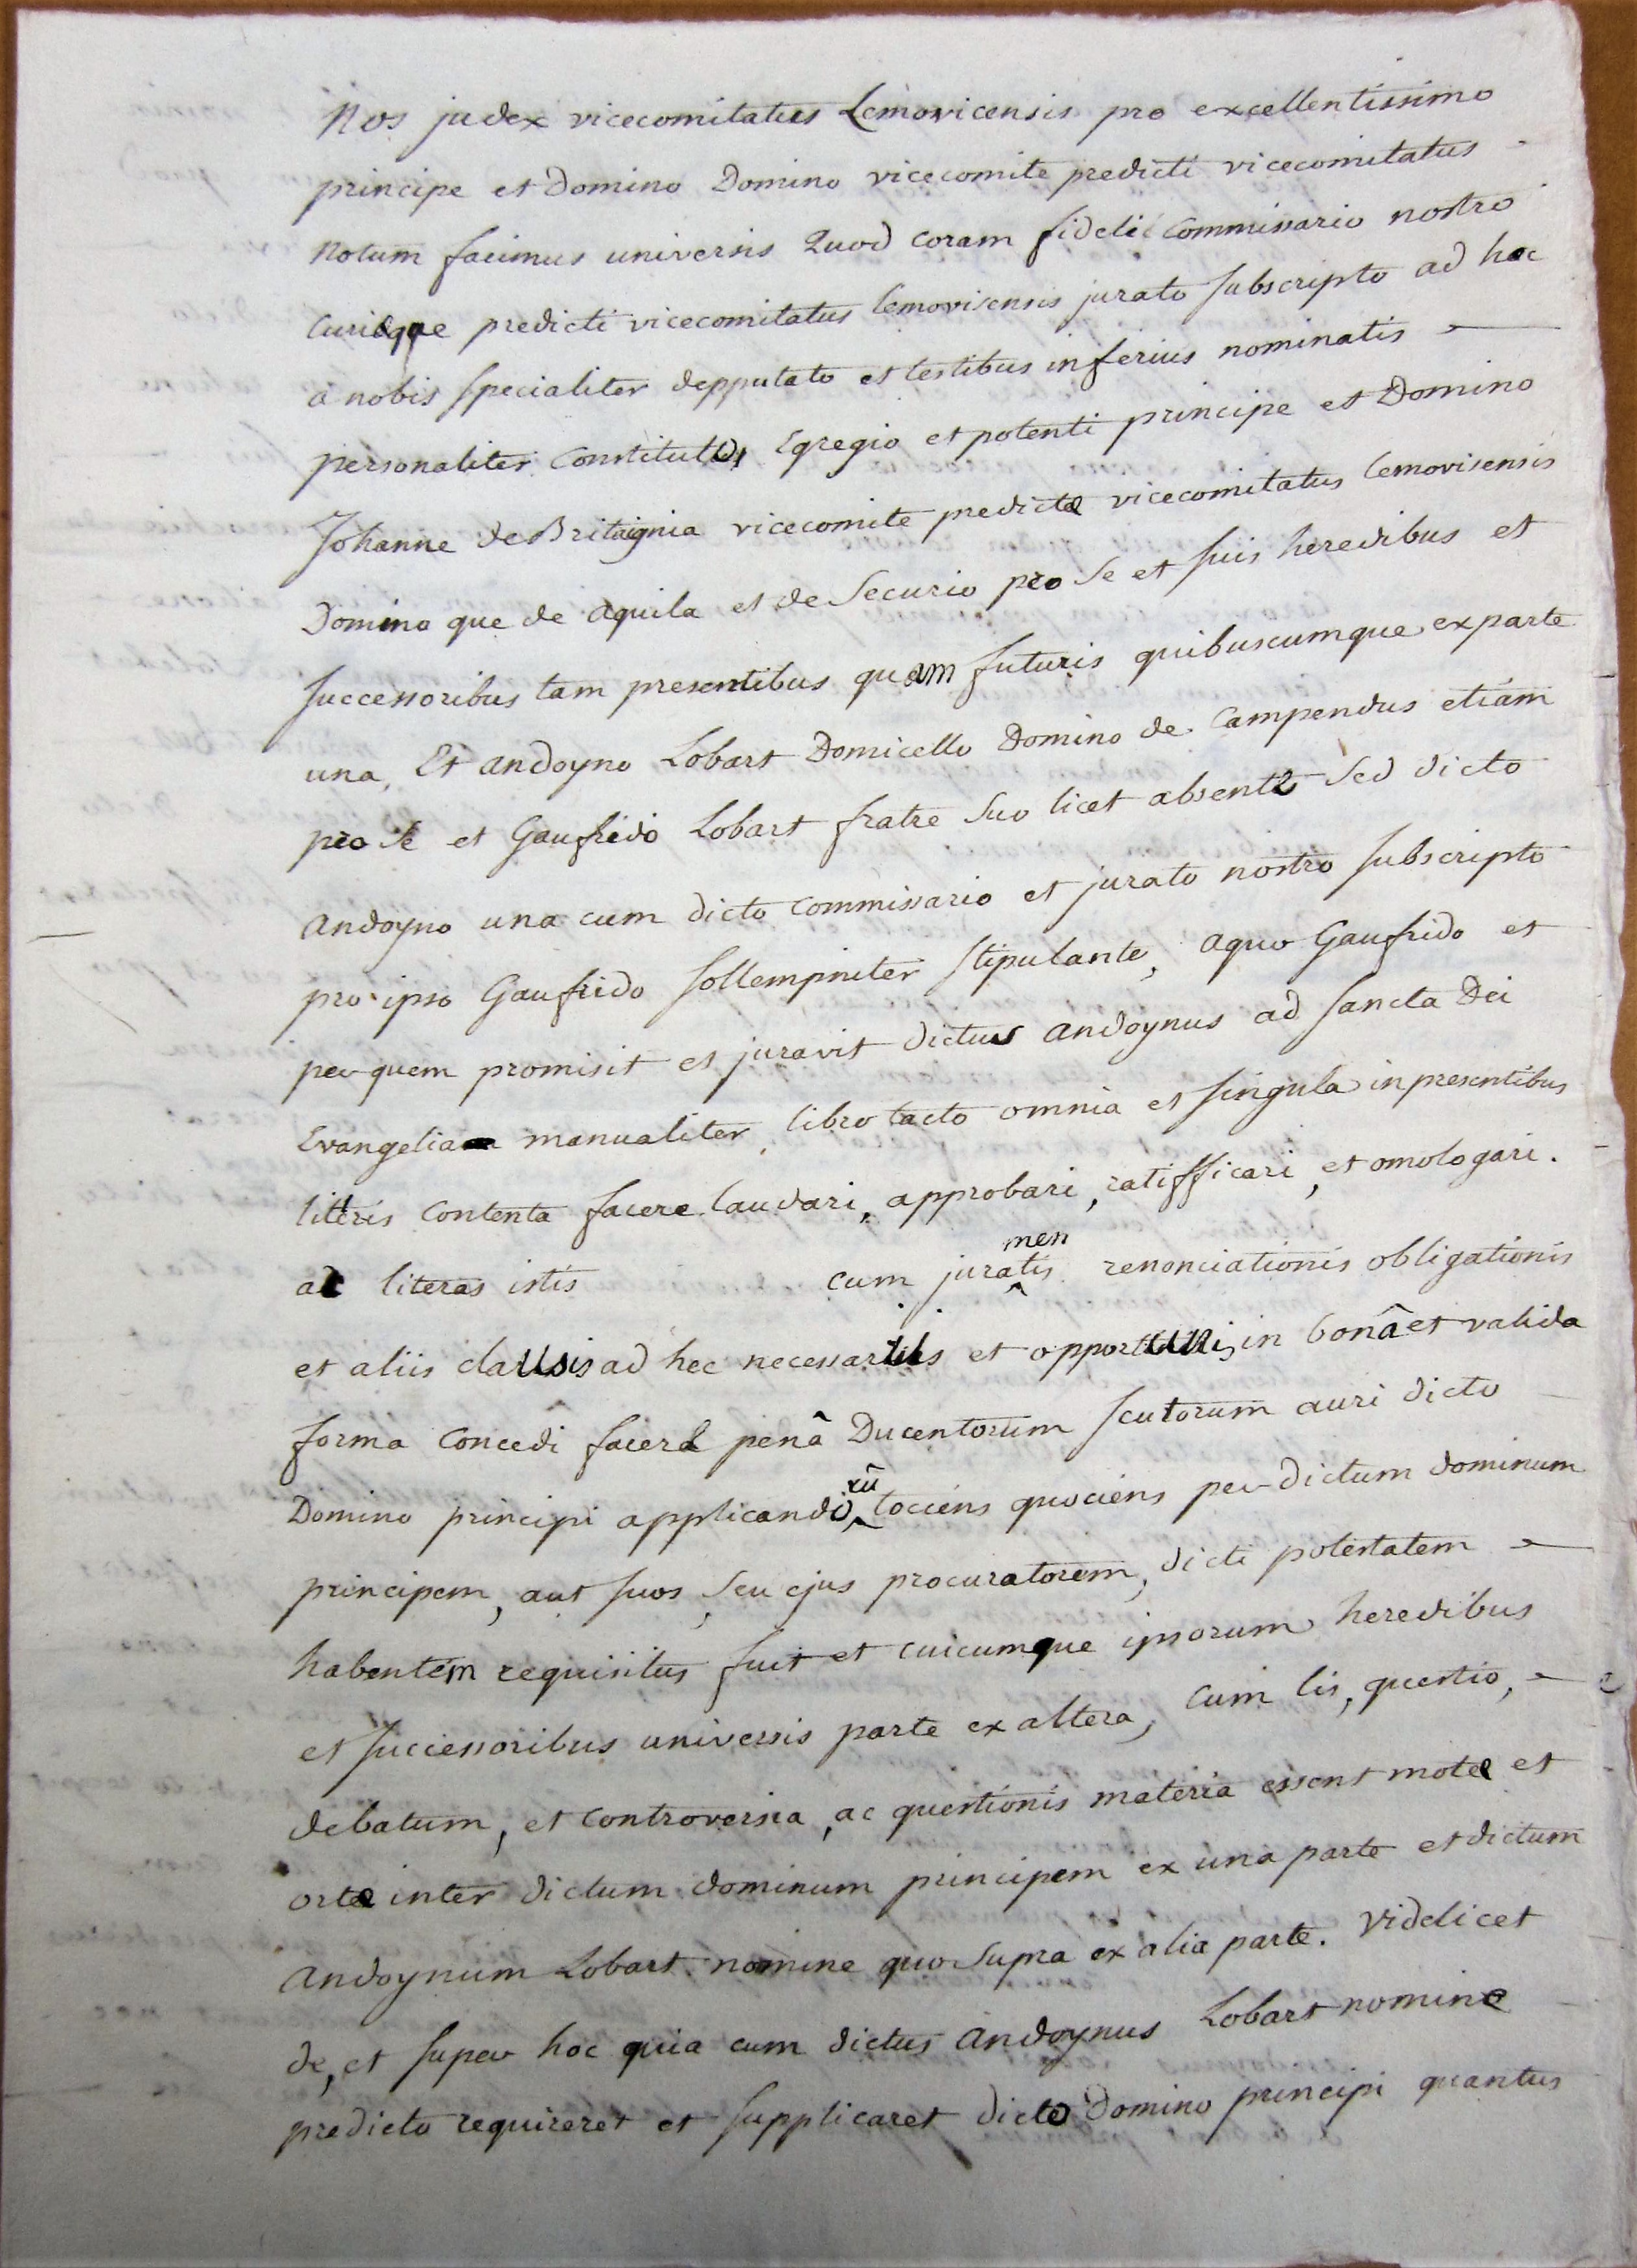 Nos judex vicecomitatus Lemovicensis pro excellentissimo
principe et Domino Domino vicecomite predicti vicecomitatus
Notum facimus universis Quod coram fideli commissario nostro
Curieque predicti vicecomitatus lemovisensis jurato subscripto ad hoc
a nobis specialiter depputato et testibus inferius nominatis
personaliter constitutis Egregio et potenti principe et Domino
Johanne de Britaignia vicecomite predicte vicecomitatus lemovisensis
Domino que de aquila et de Securio pro se et suis heredibus et
successoribus tam presentibus quam futuris quibuscumque ex parte
una, Et andoyno Lobart Domicello Domino de Campendus etiam
pro se et Gaufrido Lobart fratre suo licet absente sed dicto
andoyno una cum dicto commissario et jurato nostro subscripto
pro ipso Gaufrido sollempniter stipulante, a quo Gaufrido et
per quem promisit et juravit dictus andoynus ad sancta Dei
Evangelia manualiter, libro tacto omnia et singula in presentibus
litteris contenta facere laudari, approbari, ratifficari, et omologari.
ac literas istis cum juramentis renonciationis obligationis
et aliis clausis ad hec necessariis et opportunis, in bonâ et valida
forma concedi facere penâ Ducentorum scutorum auri dicto
Domino principi applicandorû tociens quociens per dictum dominum
principem, aut suos, seu ejus procuratorem, dicti potestatem
habentem requisitus fuit et cuicumque ipsorum heredibus
et successoribus universis parte ex altera, cum lis, questio,
debatum, et controversia, ac questionis materia essent mote et
orte inter dictum dominum principem ex una parte et dictum
Andoynum Lobart nomine quo supra ex alia parte. Videlicet
de, et super hoc quia cum dictus andoynus Lobart nomine
predicto requireret et supplicaret dicto Domino principi quantus